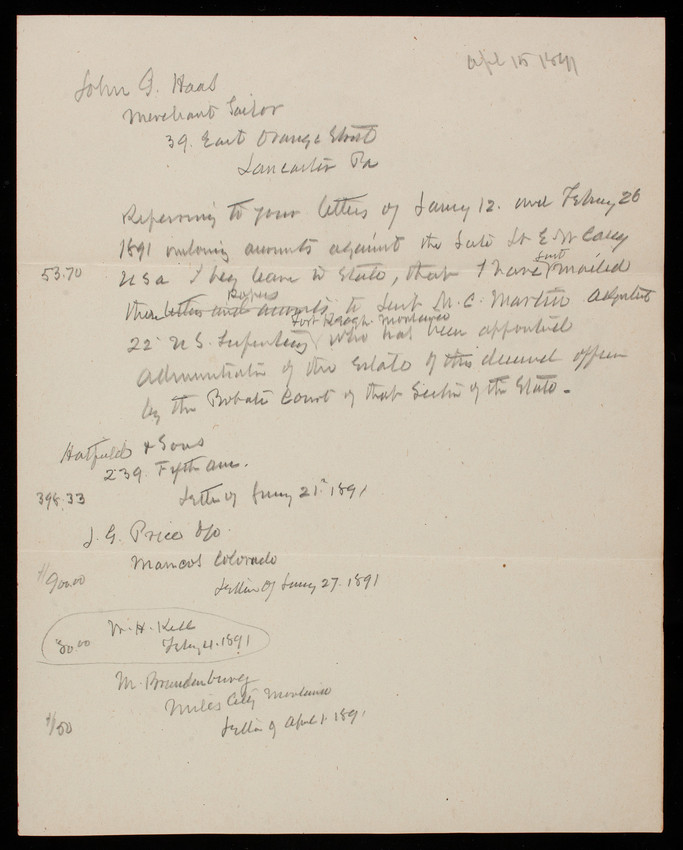 April 15 1891
John G. Haas
Merchant Tailor
39. East Orange Street
Lancaster Pa
Referring to your letters of Jany 12. and Febuy 26
1891 inclosing accounts against the late Lt E. W. Casey
53.70 USA I beg leave to state, that I have sent mailed
these letters and accounts Papers to Lieut M. C. Martin Adjutant
22 U.S. Infantry Fort Keogh Montana who has been appointed
administrator of the Estate of this deceased officer
by the Probate Court of that Section of the State.
Hatfield & Sons
239. Fifth Ave.
398.33 Letter of Jany 21. 1891
J. G. Price
Mancos Colorado
$900.00 Letter of Jany 27. 1891
W. H. Kell
30.00 Feby 4. 1891
M. Brandenburg
Miles City Montana
$/50 Letter of April 1. 1891